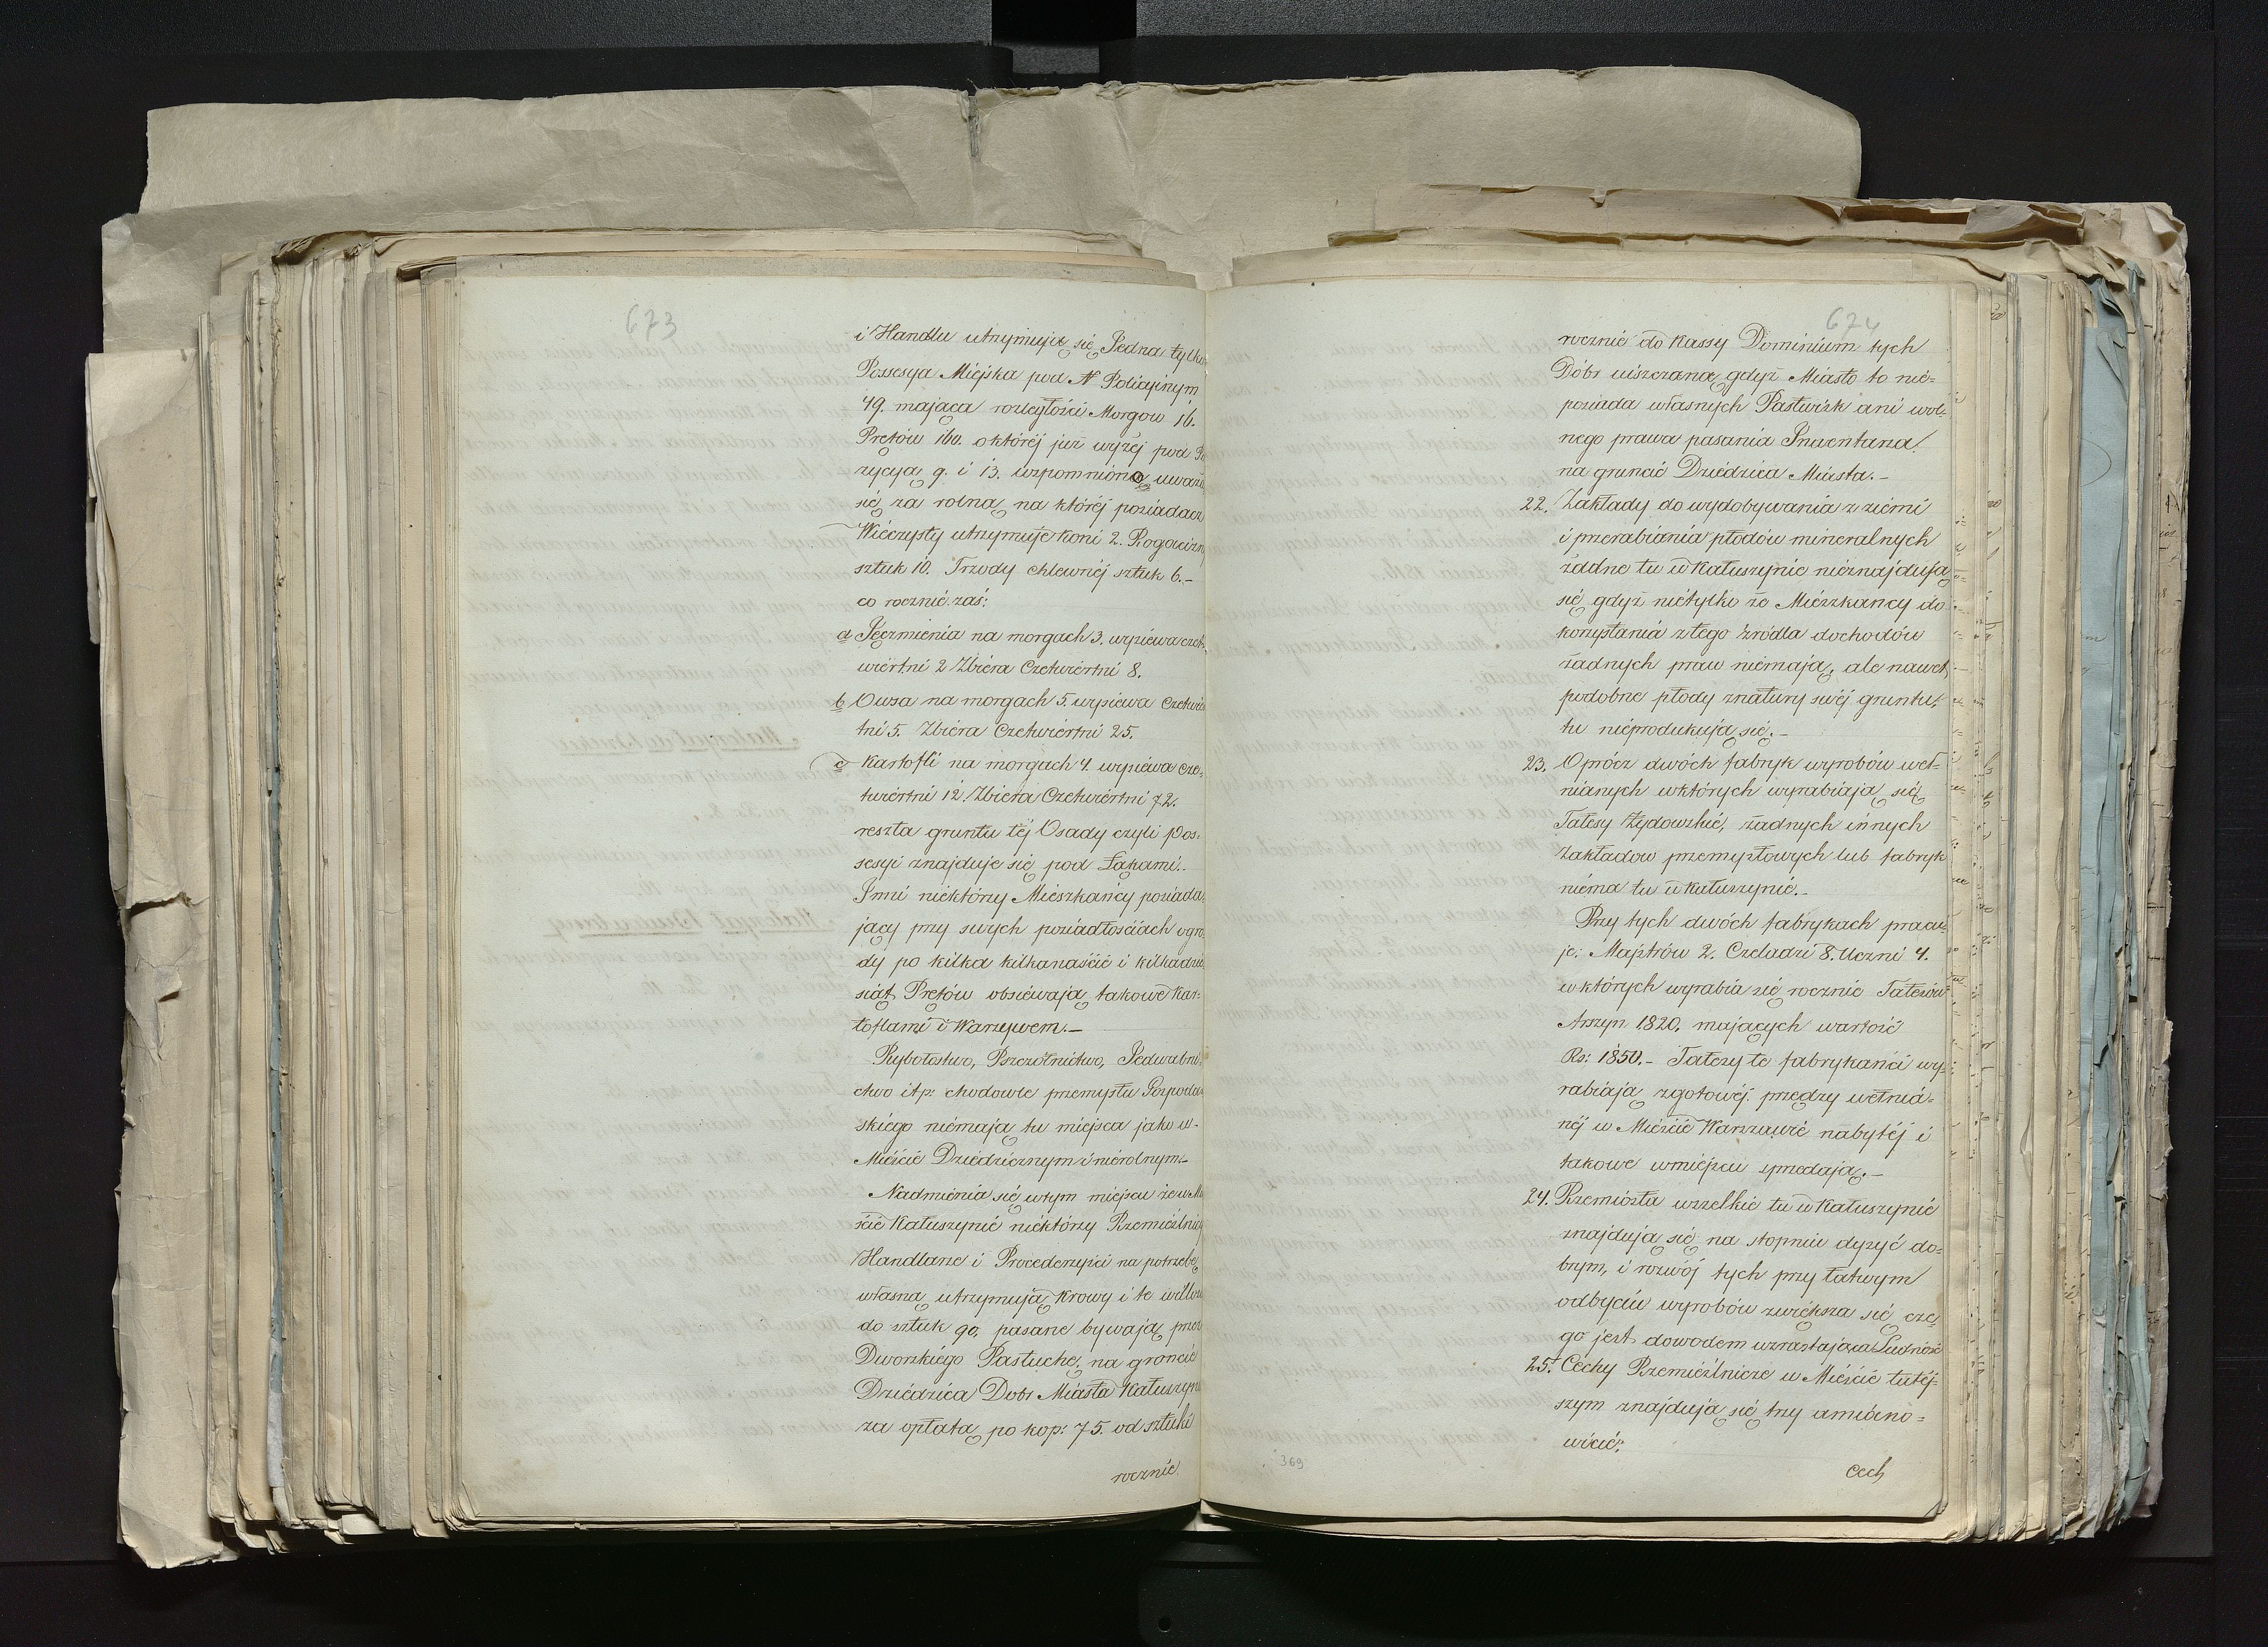 673
i Handlu utrzymuje się Jedna tylko
Possesya Miejska pod N Policijnym
49. mająca rozległości Morgow 16.
Prętów 160. o którěj już wyżěj pod Po
zycyą 9. i 13. wspomniono, uważa
się za rolną na którěj posiadacz
Wieczysty utrzymuje koni 2. Rogacizny
sztuk 10. Trzody chlewněj sztuk 6.-
co rocznie zaś:
a Jęczmienia na morgach 3. wysiewa czet-
wiertni 2 Zbiera Czetwiertni 8.
b Owsa na morgach 5. wysiewa Czetwier
tni 5. Zbiera Czetwiertni 25.
c Kartofli na morgach 4. wysiewa cze-
twiertni 12. Zbiera Czetwiertni 72.
reszta gruntu těj Osady czyli Pos-
sesyi znajduje się pod Łąkami.-
Inni niektórzy Mieszkańcy posiada
jący przy swych posiadłościach ogro
dy po kilka kilkanaście i kilkadzie
siąt Prętów obsiewają takowe Kar-
toflami i Warzywem.-
Rybołostwo, Pszczolnictwo, Jedwabni-
ctwo itp: chodowle przemysłu Gospodar
skiego niemają tu miejsca jako w-
Mieście Dziedzicznym i nierolnym.-
Nadmienia się wtym miejscu że w Mie
ście Kałuszynie niektórzy Rzemieślnicy
Handlarze i Procederzyści na potrzebę
własną utrzymują Krowy i te w illości
do sztuk 90. pasane bywają przez
Dworskiego Pastucha, na groncie
Dziedzica Dobr Miasta Kałuszyna
za opłatą po kop: 75. od sztuki
rocznie
674
rocznie do Kassy Dominium tych
Dóbr uiszczaną, gdyż Miasto to nie-
posiada własnych Pastwisk ani wol-
nego prawa pasania Inwentarza
na gruncie Dziedzica Miasta.-
22. Zakłady do wydobywania z ziemi
i przerabiania płodów mineralnych
żadne tu w Kałuszynie nieznajdują
się gdyż nietylko że Mieszkańcy do
korzystania z tego źródła dochodów
żadnych praw niemają, ale nawet
podobne płody znatury swěj gruntu,
tu nieprodukują się.-
23. Oprócz dwóch fabryk wyrobów weł-
nianych wktórych wyrabiają się
Talesy Żydowskie, żadnych innych
Zakładow przemysłowych lub fabryk
niema tu w Kałuszynie.-
Przy tych dwóch fabrykach pracu-
je: Majstrów 2. Czeladzi 8. Uczni 4.
w których wyrabia się rocznie Talesów
Arszyn 1820. mających wartość
Rs: 1850.- Talesy te fabrykanci wy-
rabiają zgotowěj przędzy wełnia-
něj w Mieście Warszawie nabytěj i
takowe wmiejscu sprzedają.-
24. Rzemiosła wszelkie tu w Kałuszynie
znajdują się na stopniu dysyć do-
brym, i rozwój tych przy łatwym
odbyciu wyrobów zwiększa się, cze-
go jest dowodem wzrastająca Ludność
25. Cechy Rzemieślnicze w Mieście tutěj-
szym znajdują się trzy amiano-
wicie:
cech
369